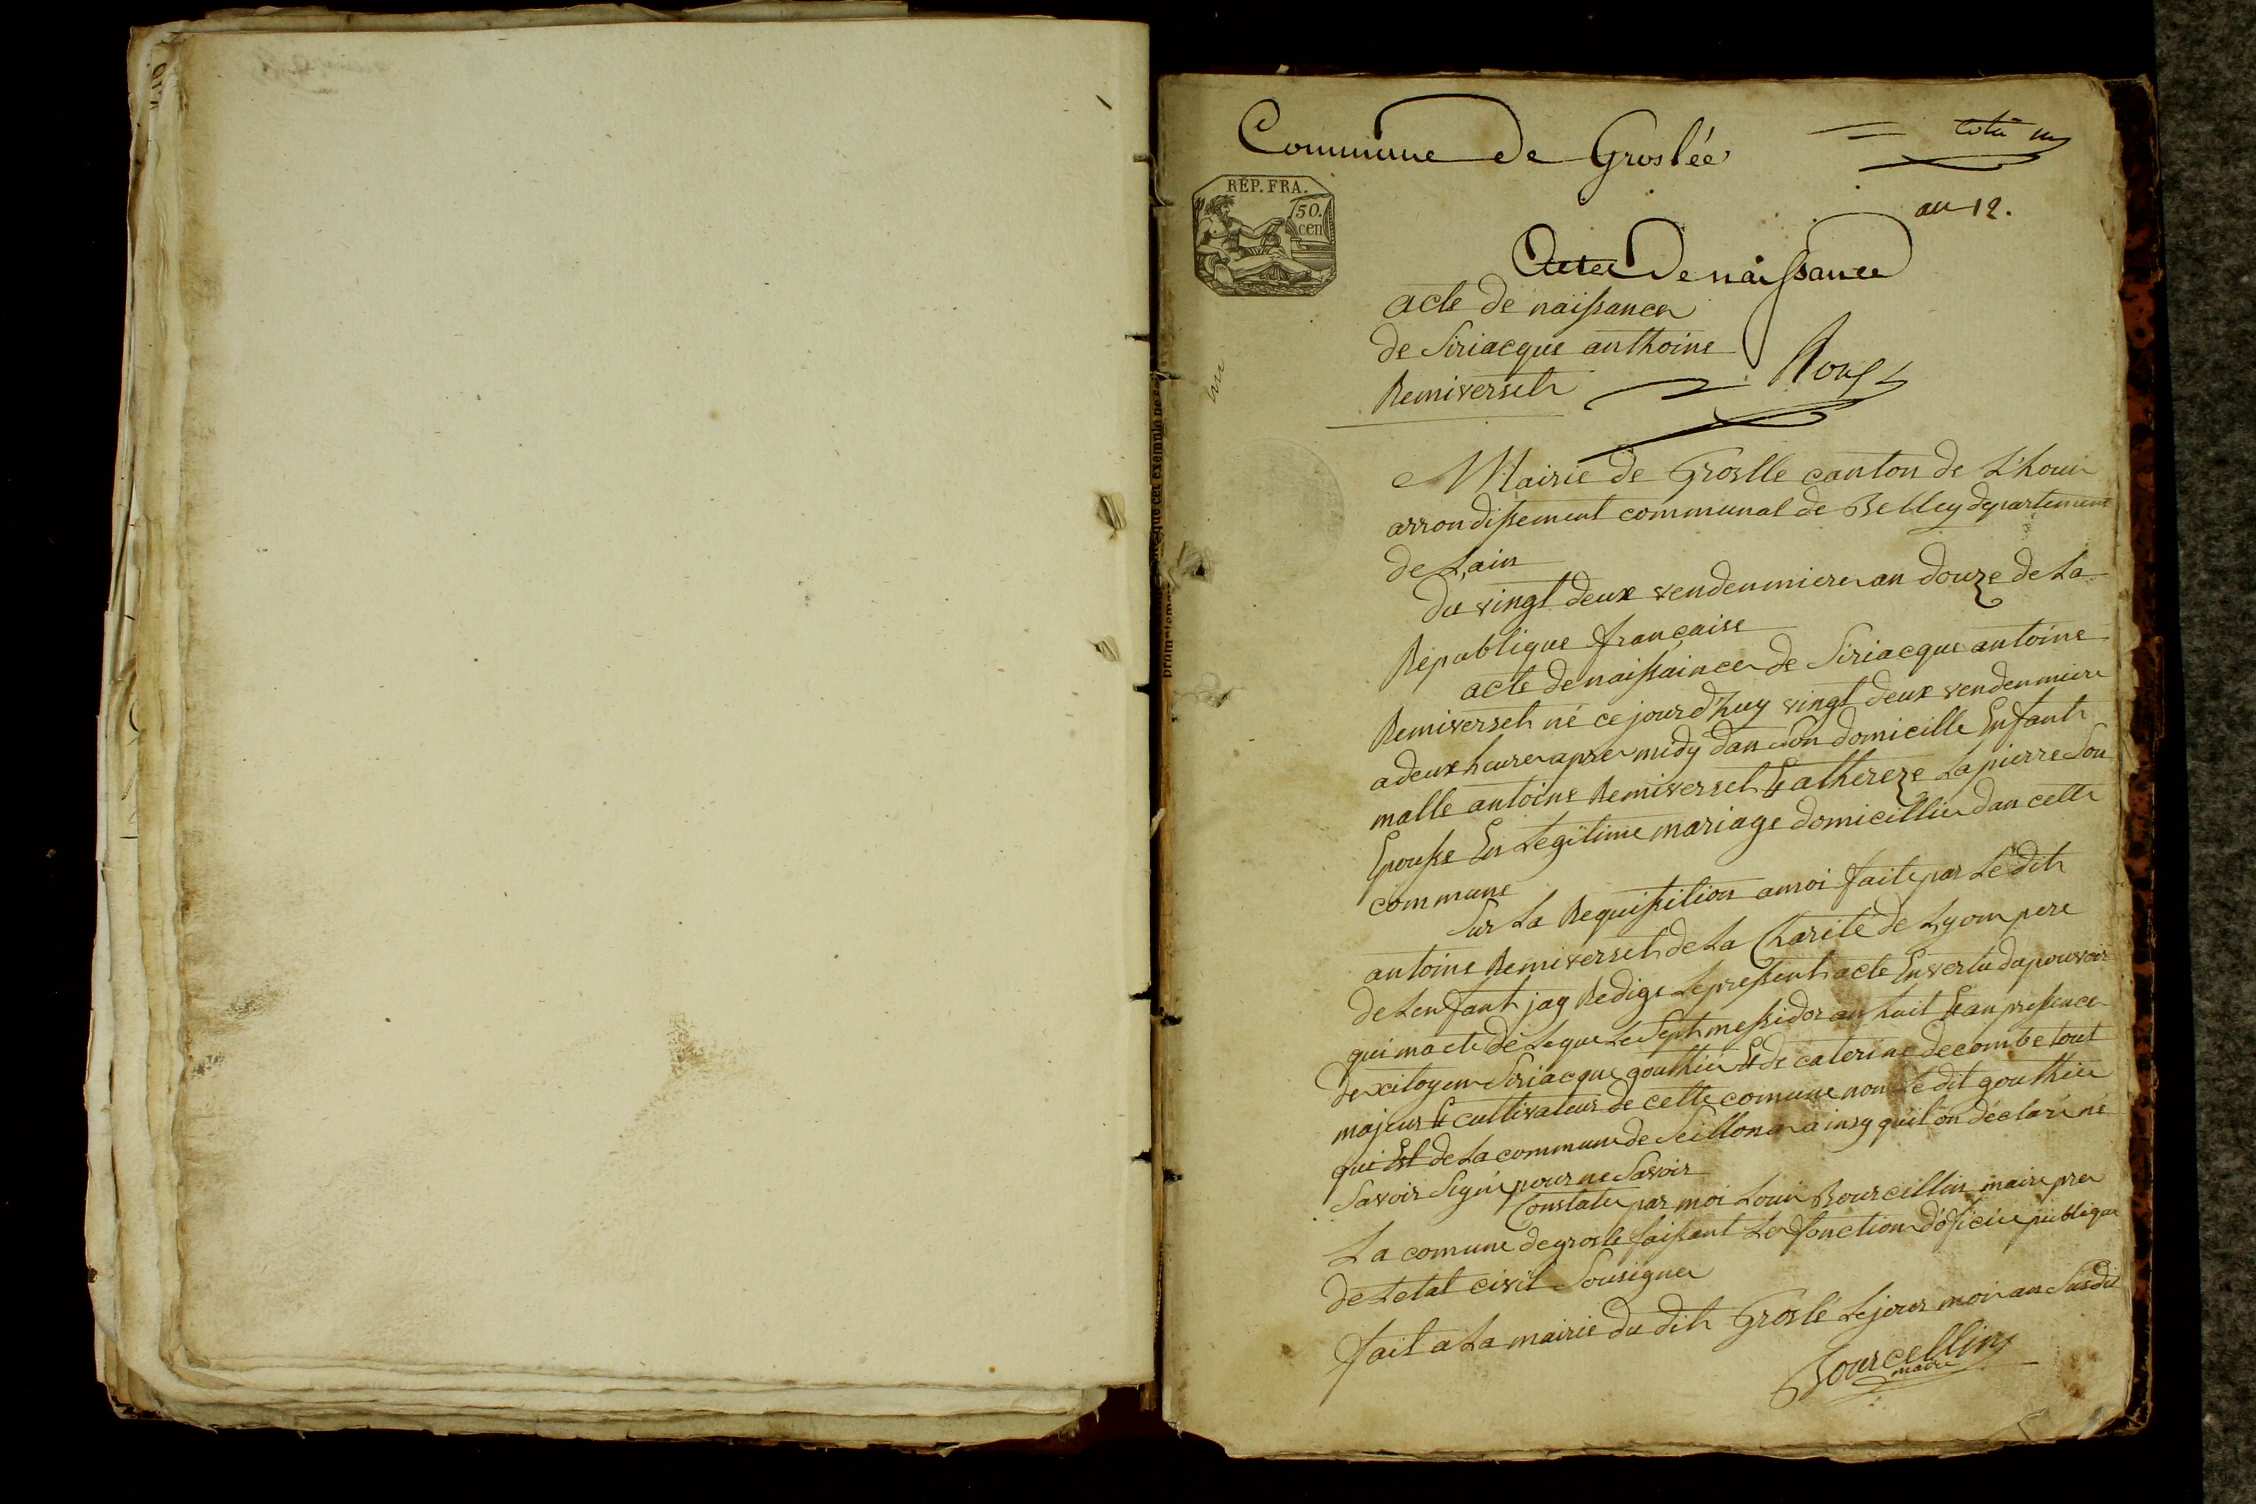 Commune de Groslée
Coté un
RÉP. FRA.
50.
cen
an 12.
Actes de naissance
acte de naissance
de Siriacque anthoine
Remiverset
Roux
Mairie de Groslle canton de L'houi
arrondissement communal de Belley departement
de L'ain
du vingt deux vendenmiere an douze de La
Republique française
acte de naissaince de Siriacque antoine
Remiverset né ce jourd'huy vingt deux vendenmiere
a deux heure apre midy dan Son domicille Enfant
malle antoine Remiverset Et athereze Lapierre Son
Epousse En Legitime mariage domicillie dan cette
commune
Sur La Requissition a moi faite par Le dit
antoine Remiverset de La Charité de Lyon pere
de Lenfant jay Redige Le pressent acte En vertu du pouvoir
qui ma ete délegue Le Sept messidor an huit Et an pressence
de citoyen Siriacque gouthier Et de caterine decombe tout
majeur Et cultivateur de cette comune non Le dit gouthier
qui Est de La commune de Seillona ainsy quil on déclaré ne
Savoir Signé pour ne Savoir
Constate par moi Loui Bourcellin maire pre
La comune de grosle faissant Le fonction d'oficie publique
de Letat civil Sousigne
fait a La mairie du dit Groslé Le jour moi an Susdit
Bourcellin
maire